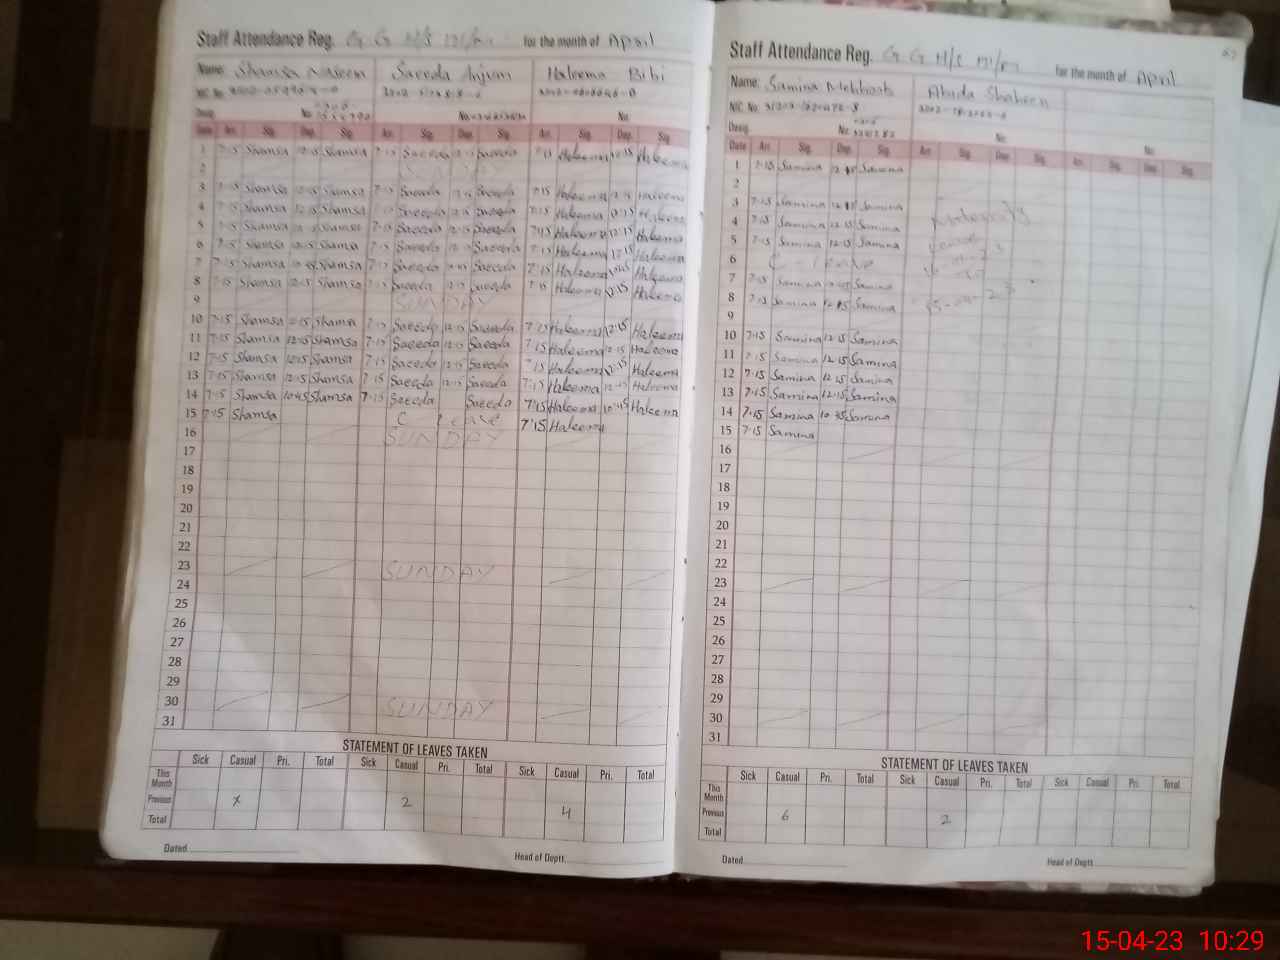 Staff Attendance Reg. G G H/S for the month of April
Name: Shamsa Naseem Saeeda Anjum Haleema Bibi
NIC No.
Desig. No. No. No.
Date Arr. Sig. Dep. Sig. Arr. Sig. Dep. Sig. Arr. Sig. Dep. Sig.
1 7:15 Shamsa 12:15 Shamsa 7:15 Saeeda 12:15 Saeeda 7:15 Haleema 12:15 Haleema
2 SUNDAY
3 7:15 Shamsa 12:15 Shamsa 7:15 Saeeda 12:15 Saeeda 7:15 Haleema 12:15 Haleema
4 7:15 Shamsa 12:15 Shamsa 7:15 Saeeda 12:15 Saeeda 7:15 Haleema 12:15 Haleema
5 7:15 Shamsa 12:15 Shamsa 7:15 Saeeda 12:15 Saeeda 7:15 Haleema 12:15 Haleema
6 7:15 Shamsa 12:15 Shamsa 7:15 Saeeda 12:15 Saeeda 7:15 Haleema 12:15 Haleema
7 7:15 Shamsa 10:45 Shamsa 7:15 Saeeda Saeeda 7:15 Haleema 10:45 Haleema
8 7:15 Shamsa 12:15 Shamsa 7:15 Saeeda 12:15 Saeeda 7:15 Haleema 12:15 Haleema
9 SUNDAY
10 7:15 Shamsa 12:15 Shamsa 7:15 Saeeda 12:15 Saeeda 7:15 Haleema 12:15 Haleema
11 7:15 Shamsa 12:15 Shamsa 7:15 Saeeda 12:15 Saeeda 7:15 Haleema 12:15 Haleema
12 7:15 Shamsa 12:15 Shamsa 7:15 Saeeda 12:15 Saeeda 7:15 Haleema 12:15 Haleema
13 7:15 Shamsa 12:15 Shamsa 7:15 Saeeda 12:15 Saeeda 7:15 Haleema 12:15 Haleema
14 7:15 Shamsa 10:45 Shamsa 7:15 Saeeda Saeeda 7:15 Haleema 10:45 Haleema
15 7:15 Shamsa C leave 7:15 Haleema
16 SUNDAY
17
18
19
20
21
22
23 SUNDAY
24
25
26
27
28
29
30 SUNDAY
31
STATEMENT OF LEAVES TAKEN
Sick Casual Pri. Total Sick Casual Pri. Total Sick Casual Pri. Total
This Month
Previous x 2 4
Total
Dated Head of Deptt.
Staff Attendance Reg. G G H/S for the month of April
Name: Samina Mehboob Abida Shaheen
NIC No.
Desig. No. No. No.
Date Arr. Sig. Dep. Sig. Arr. Sig. Dep. Sig. Arr. Sig. Dep. Sig.
1 7:15 Samina 12:15 Samina
2
3 7:15 Samina 12:15 Samina Maternity
4 7:15 Samina 12:15 Samina
5 7:15 Samina 12:15 Samina leave
6 C - leave
7 7:15 Samina Samina
8 7:15 Samina 12:15 Samina
9
10 7:15 Samina 12:15 Samina
11 7:15 Samina 12:15 Samina
12 7:15 Samina 12:15 Samina
13 7:15 Samina 12:15 Samina
14 7:15 Samina 10:45 Samina
15 7:15 Samina
16
17
18
19
20
21
22
23
24
25
26
27
28
29
30
31
STATEMENT OF LEAVES TAKEN
Sick Casual Pri. Total Sick Casual Pri. Total Sick Casual Pri. Total
This Month
Previous 6 2
Total
Dated Head of Deptt.
15-04-23 10:29